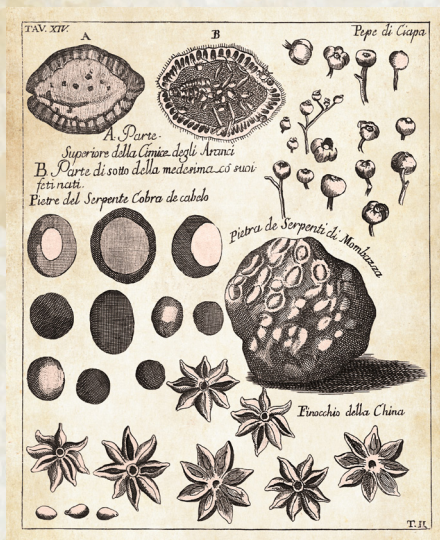 TAV. XIV.
A
B
Pepe di Ciapa
A. Parte
Superiore della Cimice degli Aranci
B Parte di sotto della medesima có suoi
feti nati.
Pietre del Serpente Cobra de cabelo
Pietra de Serpenti di Mombazza
Finocchio della China